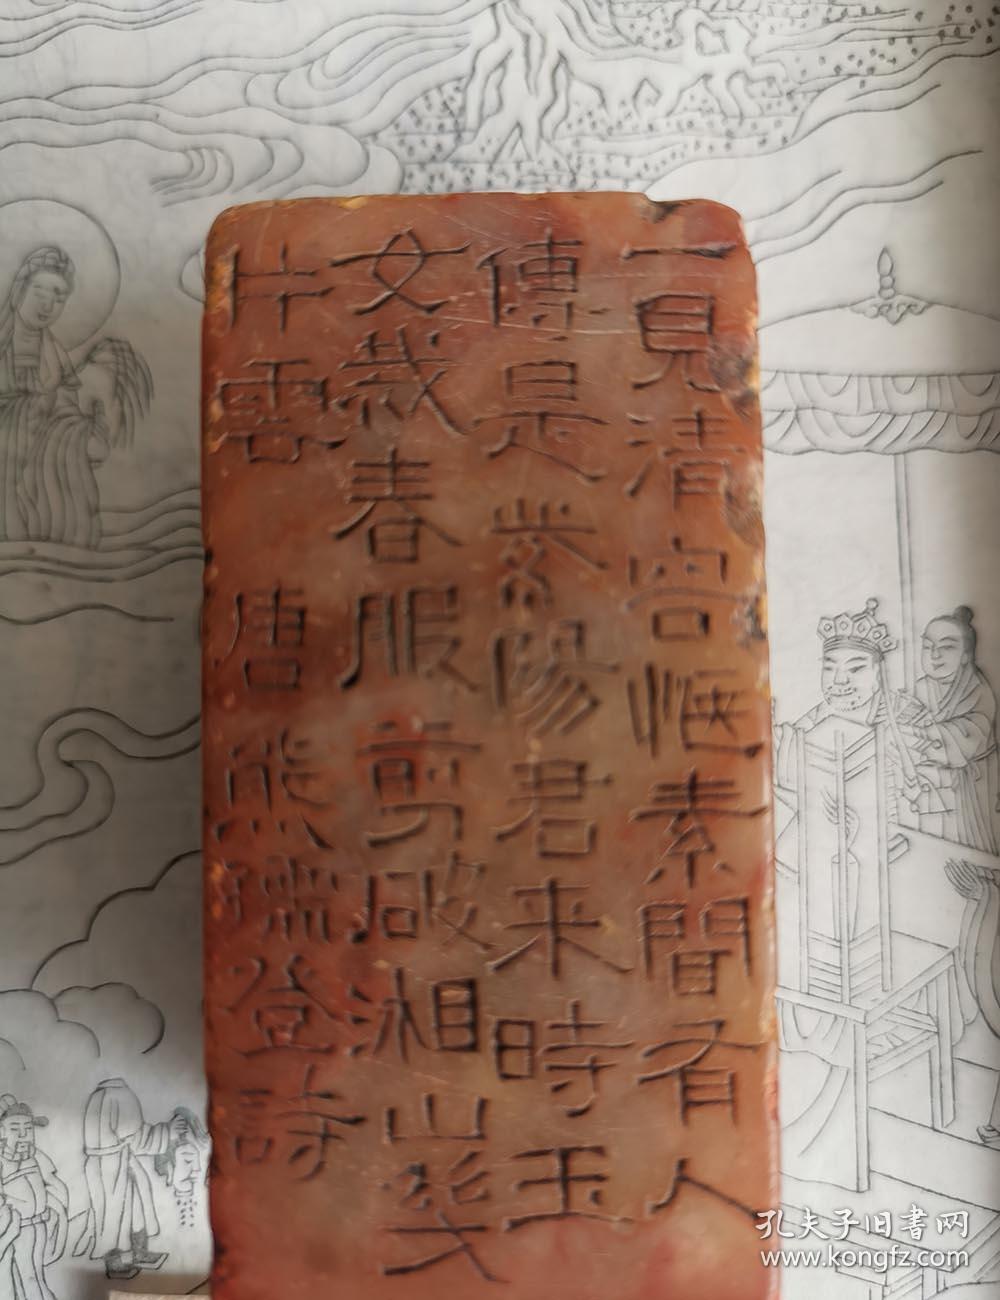 一見清容愜素聞有人
傳是紫陽君来時玉
女裁春服剪破湘山幾
片雲 唐熊孺登詩
孔夫子旧書网
www.kongfz.com